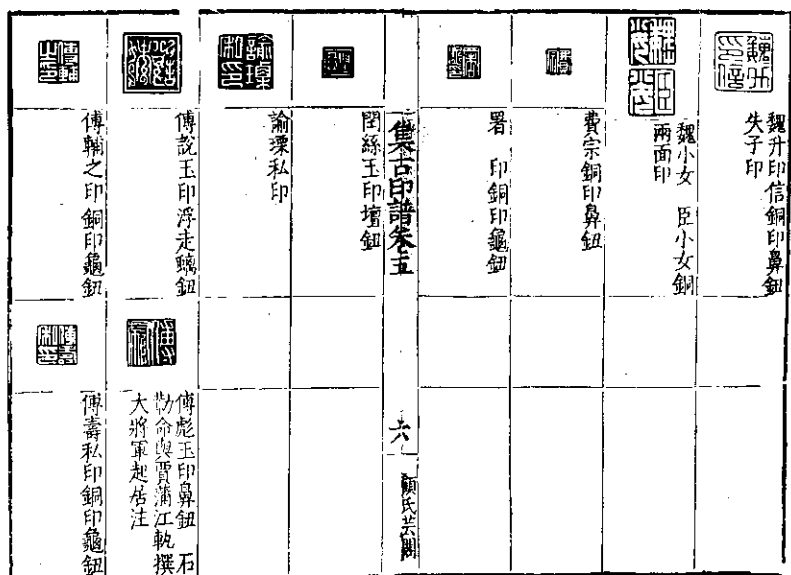 魏升印信銅印鼻鈕
失子印
魏小女 臣小女銅
兩面印
費宗銅印鼻鈕
署 印銅印龜鈕
集古印譜卷五
六
顧氏芸閣
閏絲玉印壇鈕
私印
傅說玉印浮走螭鈕
傅彪玉印鼻鈕 石
勒命與賈蒲江軌撰
大將軍起居注
傅輔之印銅印龜鈕
傅壽私印銅印龜鈕